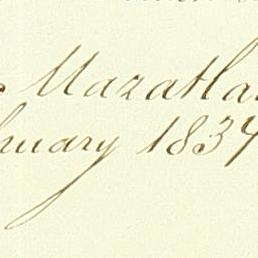 Mazatla
bruary 1834